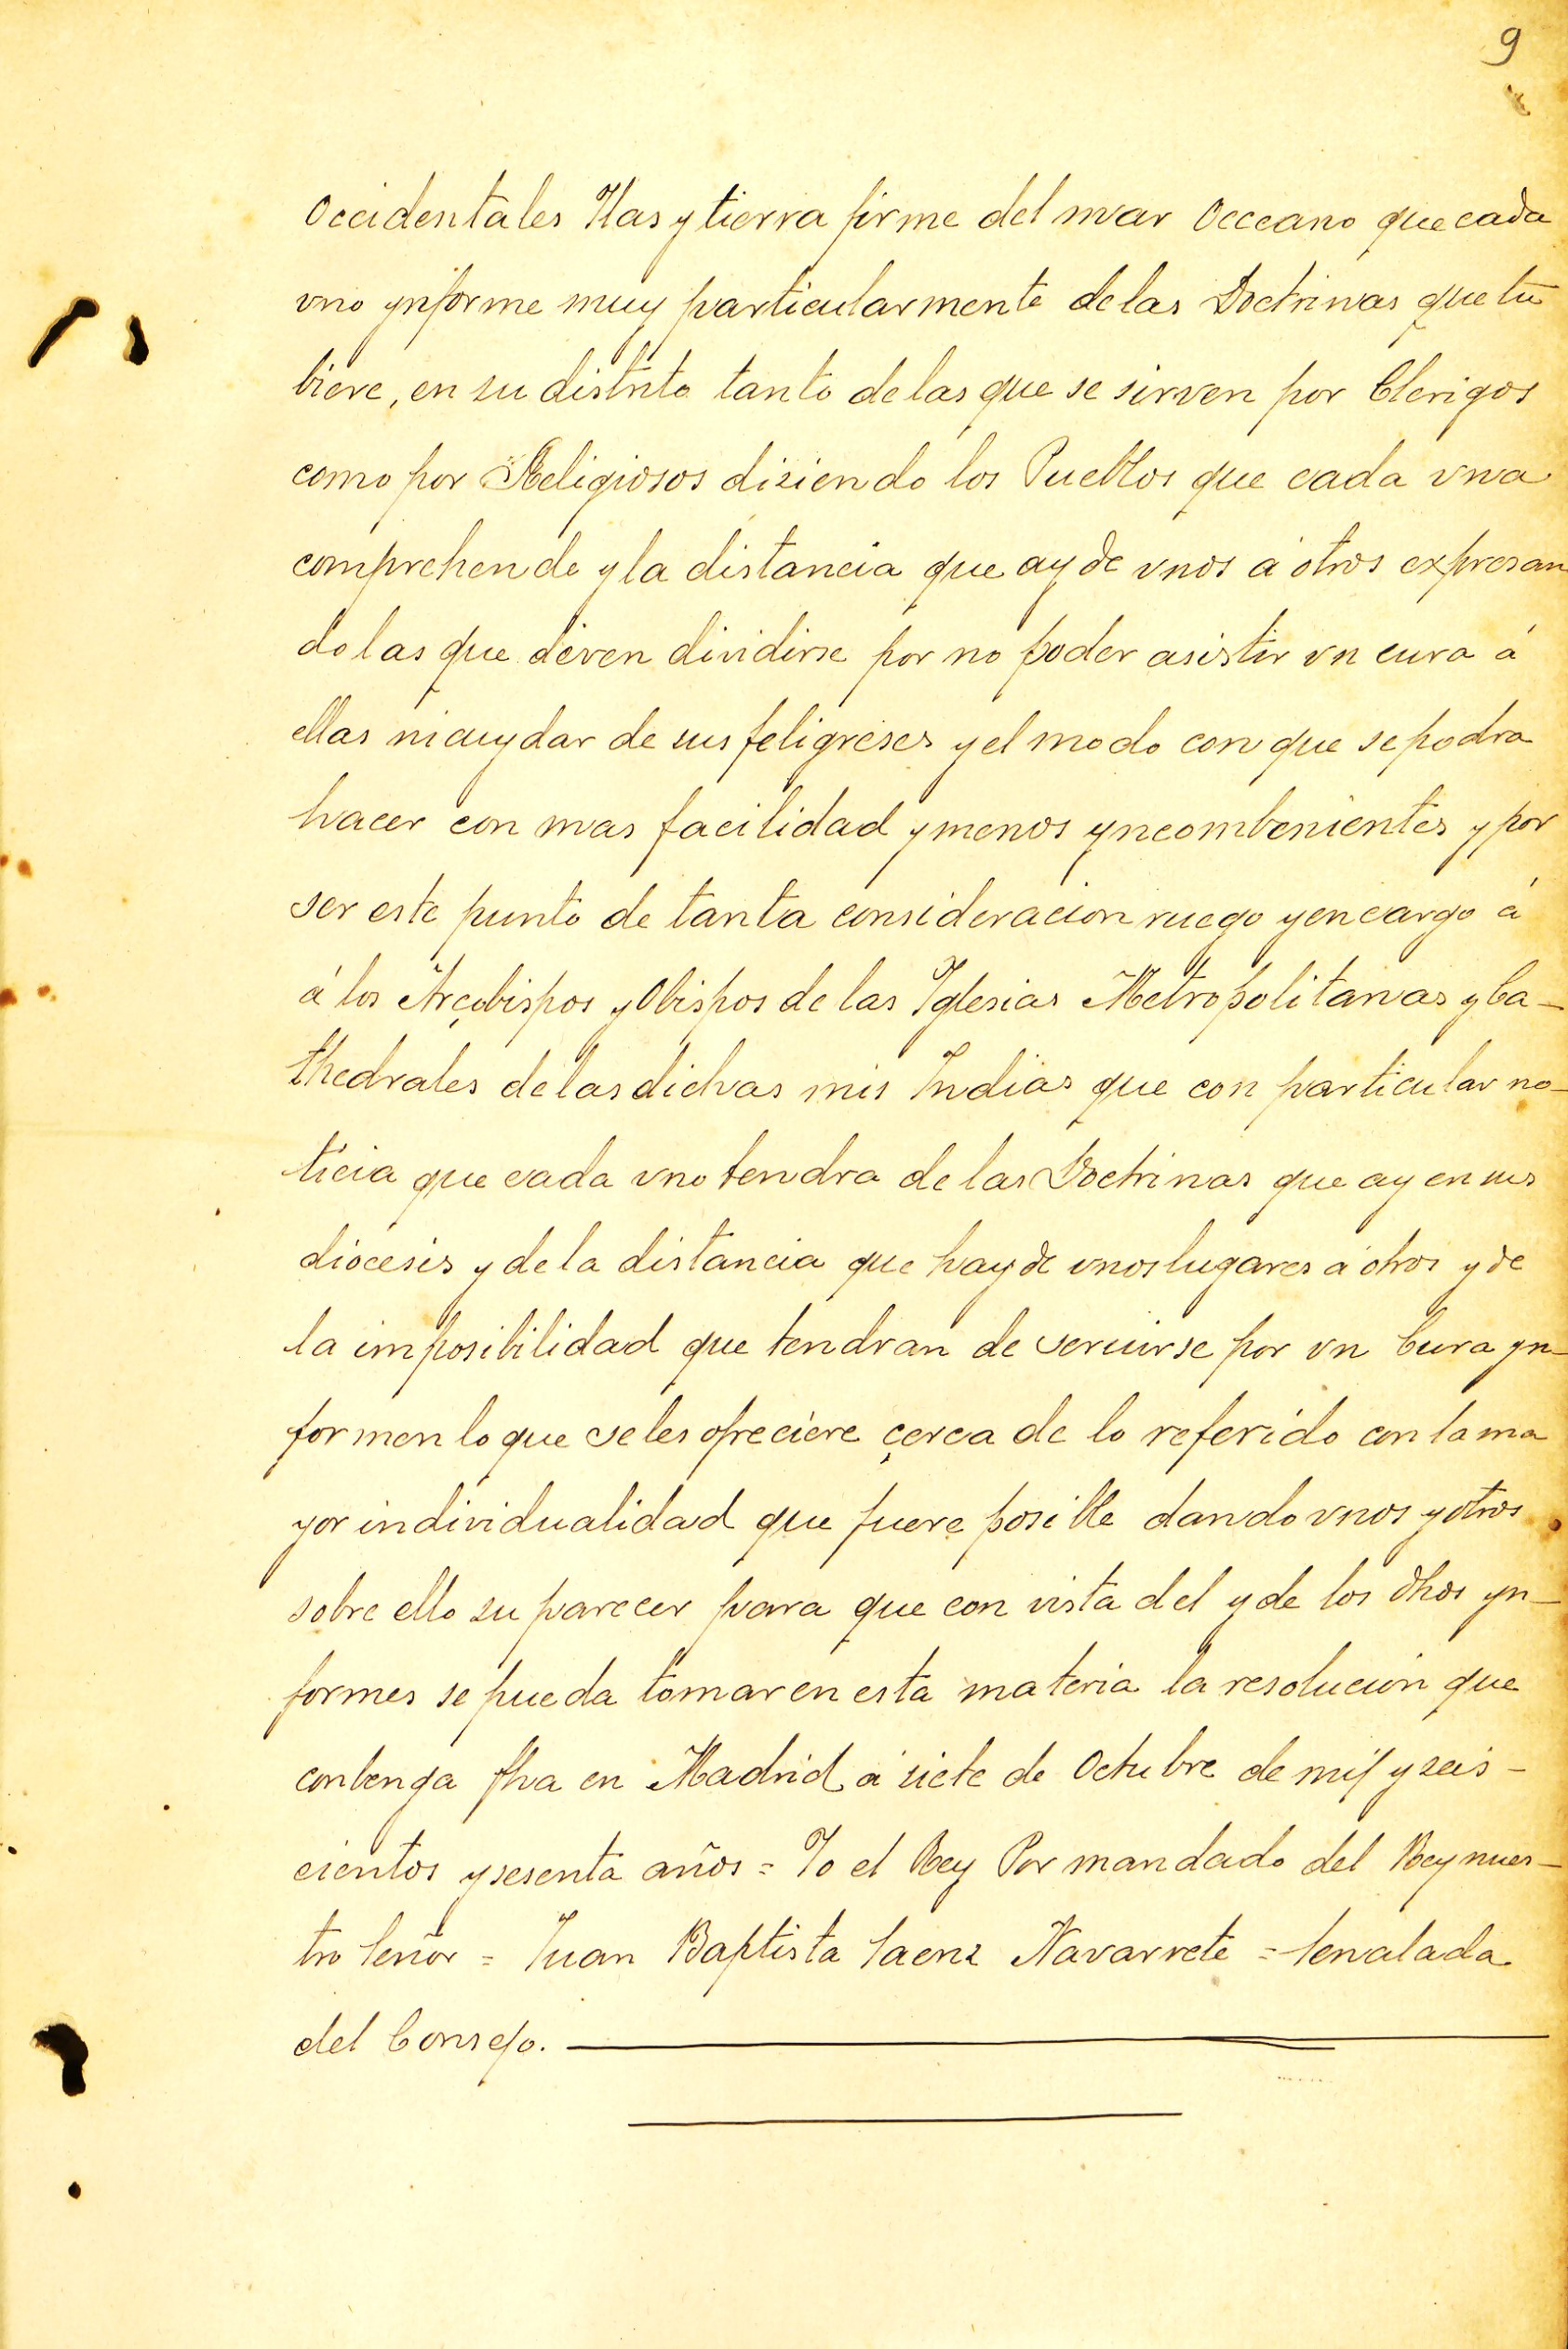 9
Occidentales Yslas y tierra firme del mar Occeano que cada
vno ynforme muy particularmente de las Doctrinas que tu
biere, en su distrito tanto de las que se sirven por Clerigos
como por Religiosos disiendo los Pueblos que cada vna
comprehende y la distancia que ay de vnos á otros expresan
do las que deven dividirse por no poder asistir vn cura á
ellas ni cuydar de sus feligreses y el modo con que se podra
hacer con mas facilidad y menos yncombenientes y por
ser este punto de tanta consideracion ruego y encargo á
á los Arçobispos y Obispos de las Yglesias Metropolitanas y Ca-
thedrales de las dichas mis Indias que con particular no-
ticia que cada vno tendra de las Doctrinas que ay en sus
diocesis y de la distancia que hay de vnos lugares á otros y de
la imposibilidad que tendran de seruirse por vn Cura yn-
formen lo que se les ofreciere çerca de lo referido con la ma
yor individualidad que fuere posible dando vnos y otros
sobre ello su parecer para que con vista del y de los dhos yn-
formes se pueda tomar en esta materia la resolucion que
conbenga fha en Madrid á siete de Octubre de mil y seis-
cientos y sesenta años = Yo el Rey Por mandado del Rey nues-
tro Señor = Juan Baptista Saenz Navarrete = Senalada
del Consejo.